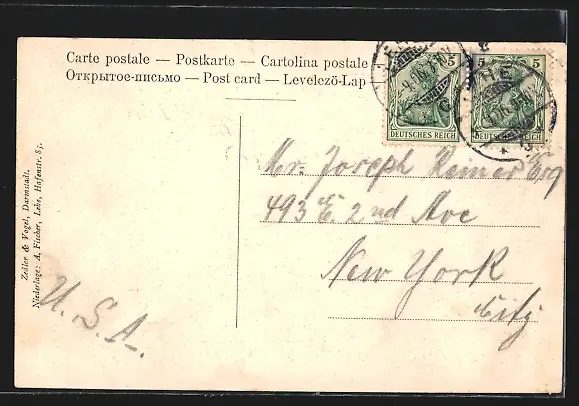 Carte postale — Postkarte — Cartolina postale
Открытое-письмо — Post card — Levelezö-Lap
5
5 5
DEUTSCHES REICH
DEUTSCHES REICH
LEHE
Zedler & Vogel, Darmstadt.
Niederlage: A. Fischer, Lehe, Hafenstr. 85.
Mr. Joseph Reimer Esq
493 E. 2nd Ave
New York
City
U.S.A.